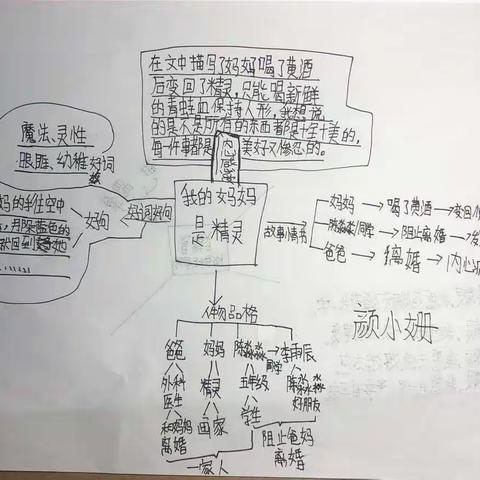 在文中描写了妈妈喝了黄酒
后变回了精灵,只能喝新鲜
的青蛙血保持人形,我想说
的是不是所有的东西都是十全十美的,
每一件事都是 美好又惨忍的。
内感受
魔法、灵性
眼睚、幼稚好词
妈的手往空中
好句
好词好句
我的妈妈
是精灵
故事情书
妈妈→喝了黄酒→变回小
陈淼淼同学→阻止离婚→发
爸爸→离婚→内心
人物品格
爸爸 妈妈 陈淼淼→李雨辰
同学
外科医生 精灵 五年级 陈淼淼好朋友
和妈妈离婚 画家 学生 阻止爸妈离婚
一家人
颜小姗